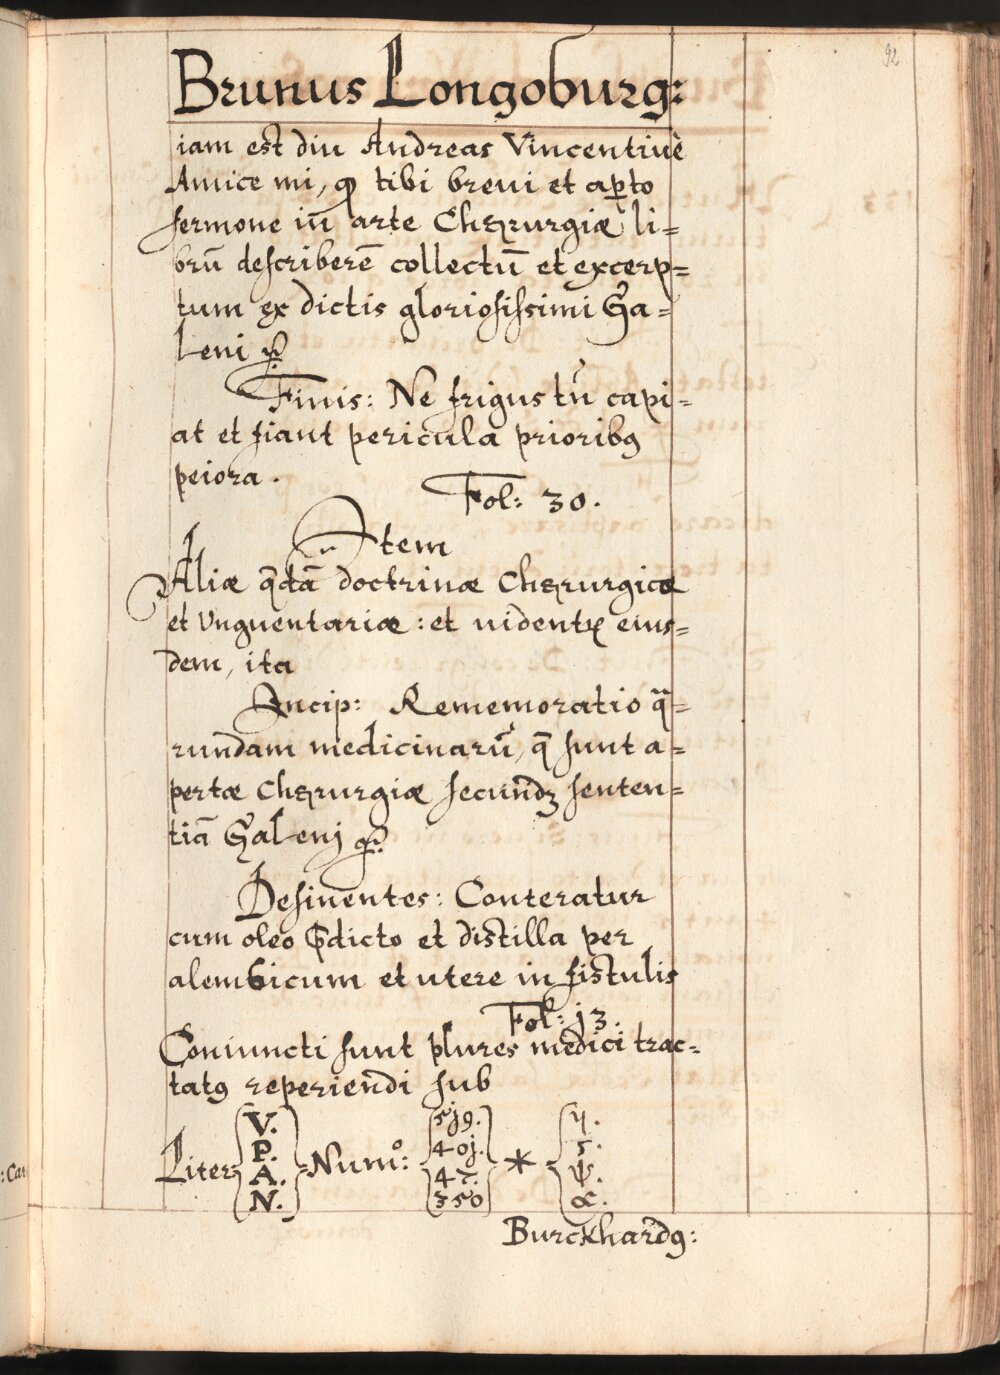 92
Brunus Longoburg:
iam est diu Andreas Vincentiuè
Amice mi, qđ tibi breui et aperto
sermone in arte Chyrurgiæ li=
brū describerē collectū et excerp=
tum ex dictis gloriosissimi Ga=
leni
Finis: Ne frigus tū capi=
at et fiant pericula prioribꝰ
peiora.
Fol: 30.
Item
Aliæ qdā doctrinæ Chyrurgicæ
et Vnguentariæ: et uidentꝛ eius=
dem, ita
Incip: Rememoratio qa=
rundam medicinarū, q̄ sunt a=
pertæ Chyrurgiæ secundꝫ senten=
tiā Galenj
Desinentes: Conteratur
cum oleo p̄dicto et distilla per
alembicum et utere in fistulis
Fol: j3.
Coniuncti sunt plures medici trac=
tatꝰ reperiendi sub
V. 5j9. η.
P. 40j. 5.
Liter: A. Numº: 47. * ψ.
N. 350 α.
: Car
Burckhardꝰ: